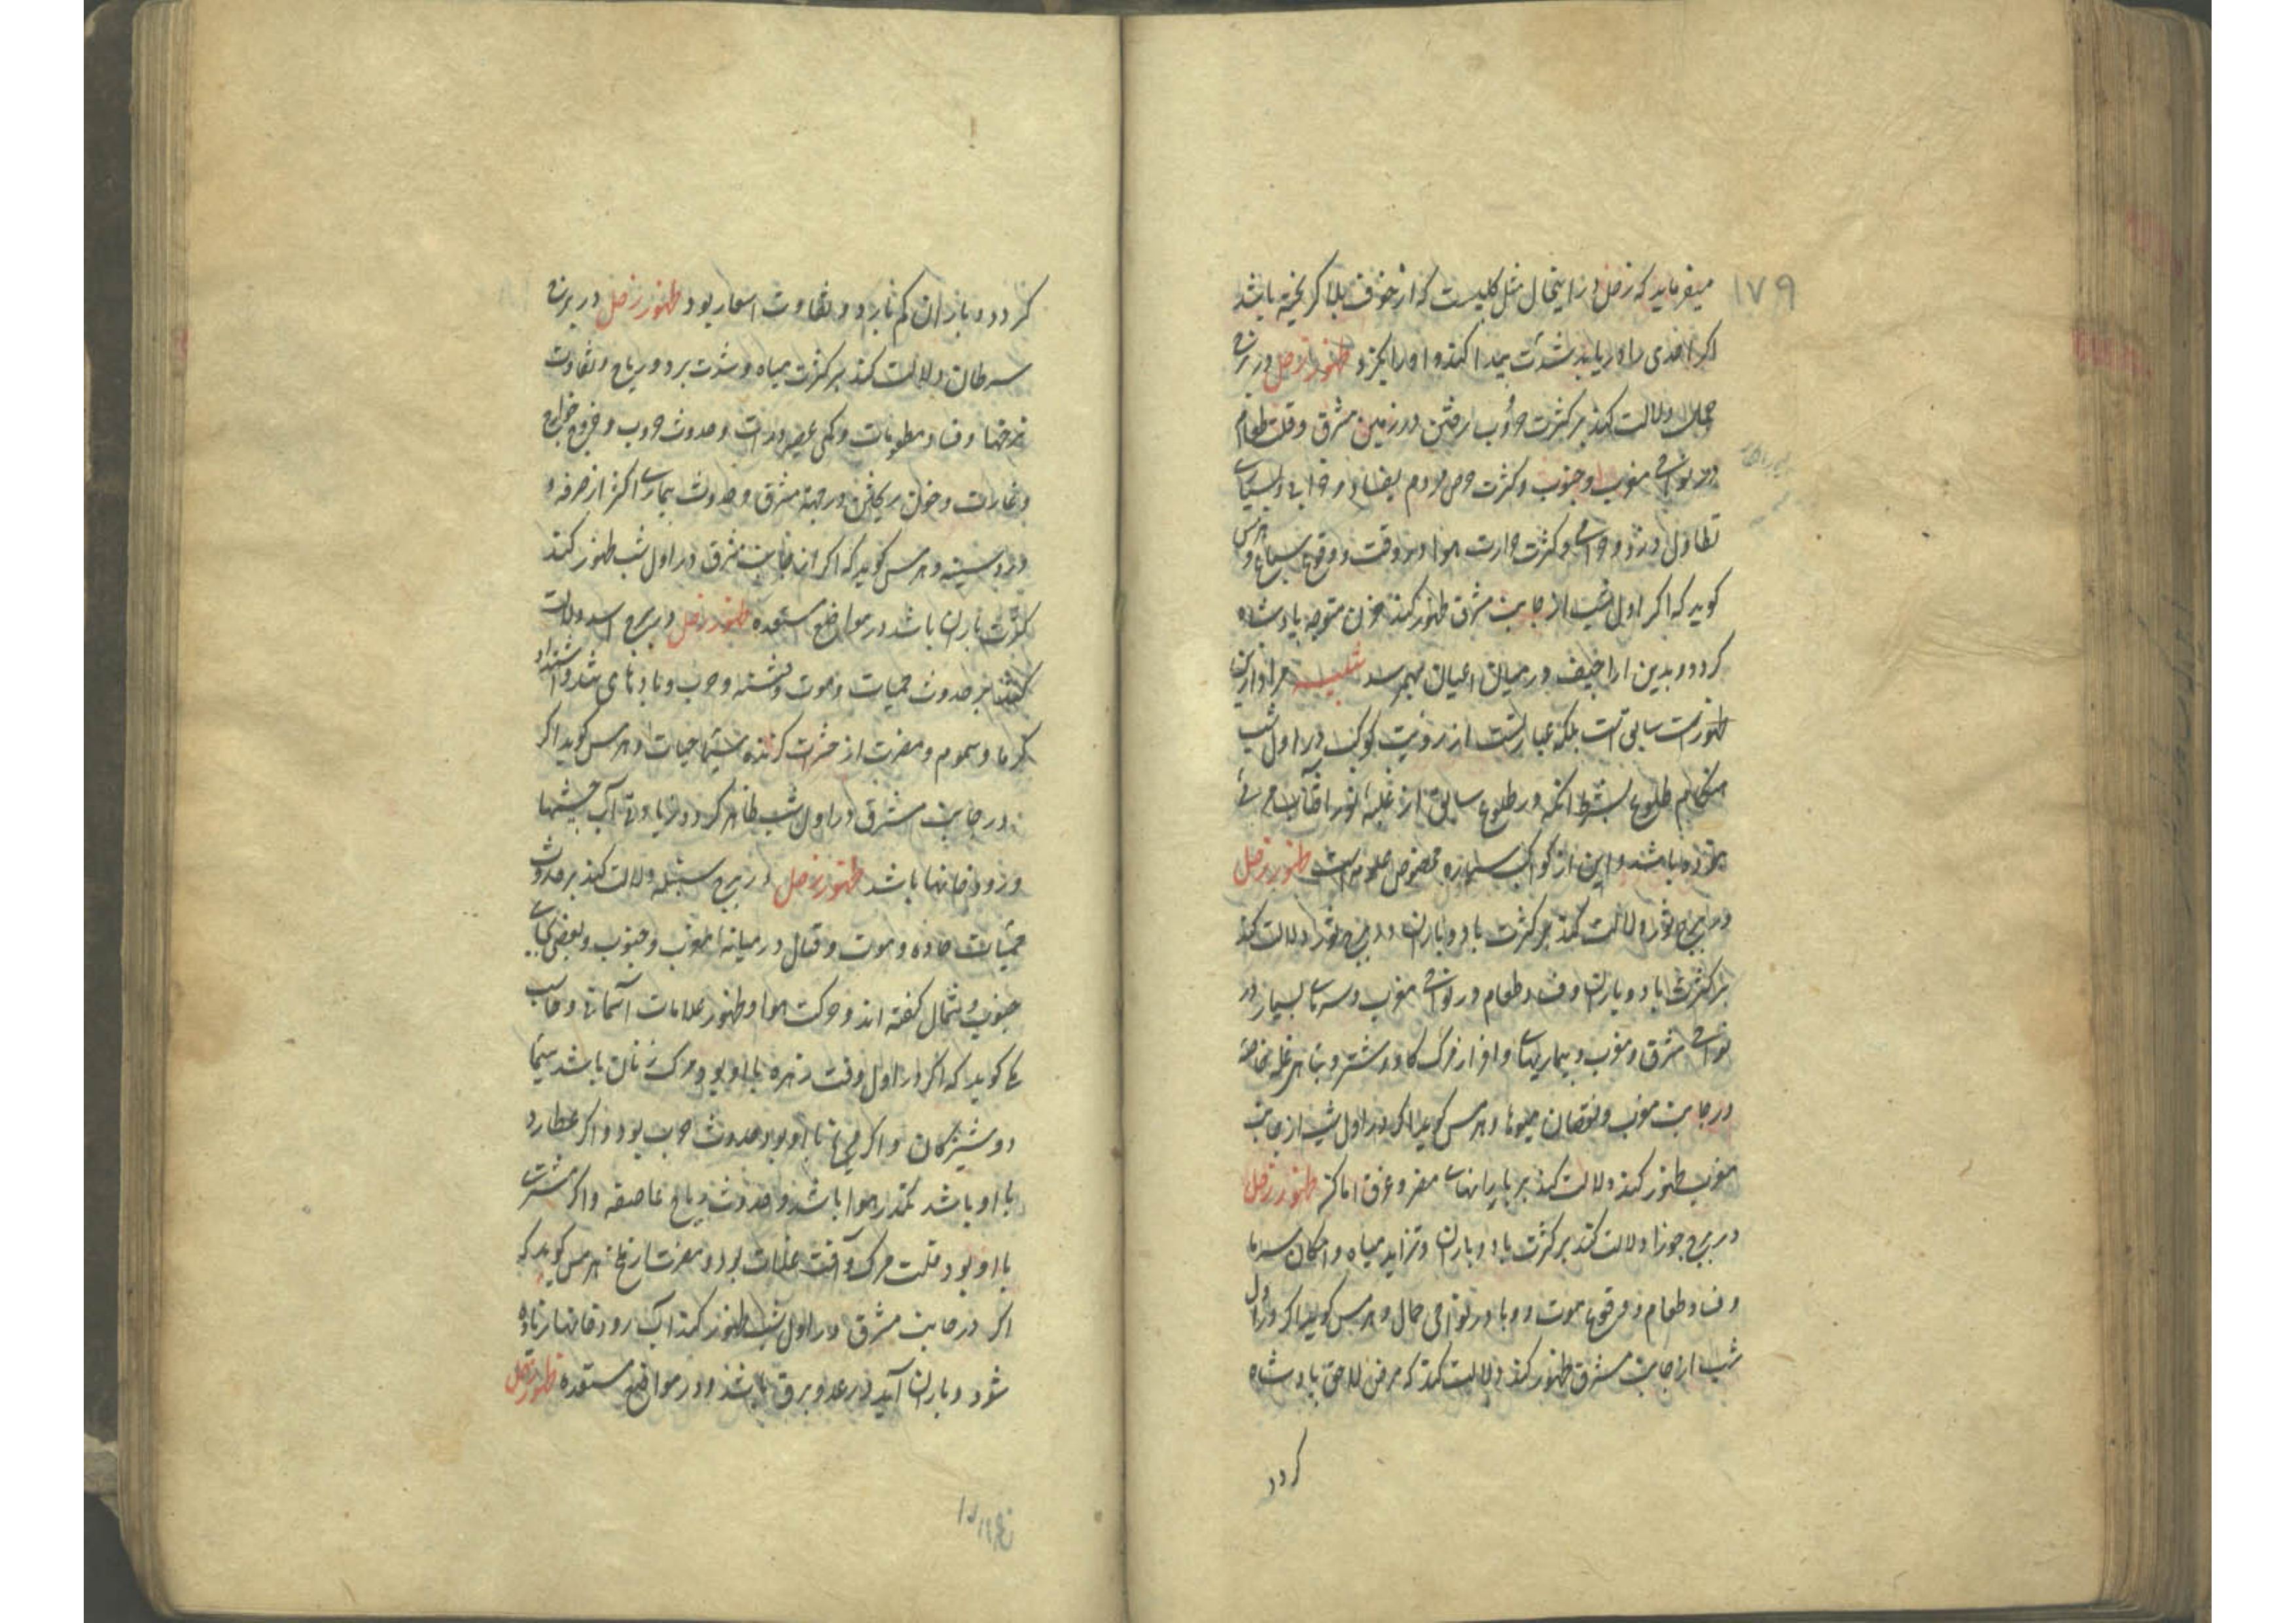 ۱۷۹
میفرماید که زحل در اینحال مثل کلبیست که از خوف بلا گریخته باشد
اکر احدی را دریابد شدت پیدا کند و او را بکزد ظهور زحل در برج
حمل دلالت کند بر کثرت حروب ارفتن در زمین مشرق و قلت طعام
در نواحی مغرب و جنوب و کثرت حرص مردم بفساد و خرابی و بسیاری
تطاول دزد و حرامی و کثرت حرارت هوا در وقت و وقوع سباع و هرمس
کوید که اکر اول شب از جانب مشرق ظهور کند حزن متوجه پادشاه
کردد و بدین اراجیف در میان اعیان بهم رسد تنبیه مراد از این
ظهور نه سابق است بلکه عبارتست از رؤیت کوکب در اول شب
هنکام طلوع بشرط انکه در طلوع سابق از غلبه نور افتاب مرئی
نبوده باشد و این از کواکب سیاره مخصوص علویه است ظهور زحل
در برج ثور دلالت کند بر کثرت باد و باران در برج ثور دلالت کند
بر کثرت باد و باران و فساد طعام در نواحی مغرب و سرمای بسیار در
نواحی مشرق و مغرب و بیماریهای و مرک کاو و شتر و تباهی غله خاصه
در جانب مغرب و نقصان میوها و هرمس کوید اکر در اول شب از جانب
مغرب ظهور کند دلالت کند بر بارانهای مضر و غرق اماکن ظهور زحل
در برج جوزا دلالت کند بر کثرت باد و باران و تزاید میاه و امکان سرما
و فساد طعام و وقوع موت و وبا در نواحی حال و هرمس کوید اکر در اول
شب از جانب مشرق ظهور کند دلالت کند که مرض لاحق پادشاه
کردد
کردد و باران کم بارد و تفاوت اسعار بود ظهور زحل در برج
سرطان دلالت کند بر کثرت میاه و شدت برد و ریاح و تفاوت
نرخها و فساد مطعومات و کمی بعض و حدوث حروب و خروج خوارج
و غارت و خون ریختن در جهة مشرق و حدوث بیماری اکثر از سرفه و
درد سینه و هرمس کوید که اکر از جانب مشرق در اول شب ظهور کند
کثرت باران باشد در مواضع مستعده ظهور زحل در برج اسد دلالت
کند بر حدوث حمیات و موت و فتنه و حرب و بادهای تند و اشتداد
کرما و سموم و مضرت از حشرات کزنده سیما حیات و هرمس کوید اکر
در جانب مشرق در اول شب ظاهر کردد زیادتی آب چشمها
و رودخانها باشد ظهور زحل در برج سنبله دلالت کند بر حدوث
حمیات حاده و موت و قتال در میانه مغرب و جنوب و بعضی بجای
جنوب شمال کفته اند و حرکت هوا و ظهور علامات آسمانی و صاحب
کوید که اکر در اول وقت زهره با او بود مرک زنان باشد سیما
دوشیزکان و اکر مریخ با او بود حدوث حرب بود و اکر عطارد
با او باشد تکدر هوا باشد و حدوث ریاح عاصفه و اکر مشتری
با او بود قلت مرک و آفت غلات بود و مضرت هرمس کوید که
اکر در جانب مشرق در اول شب ظهور کند آب رودخانها زیاده
شود و باران آید و رعد و برق باشد و در مواضع مستعده ظهور زحل